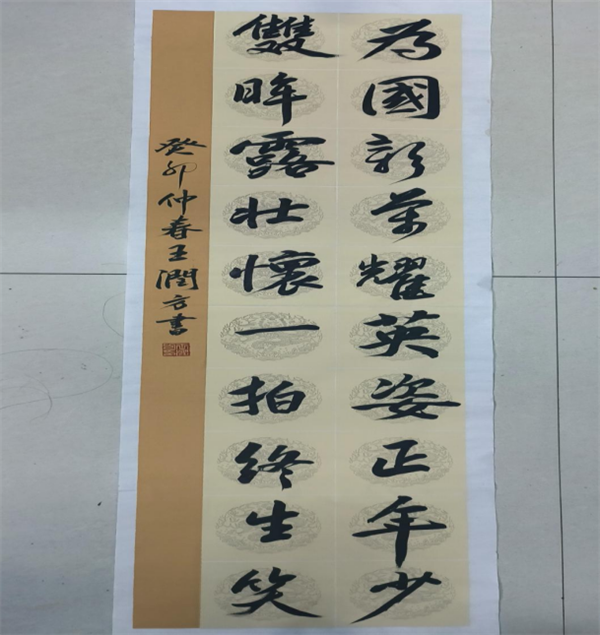 為國彰荣耀英姿正年少
雙眸露壯懷一拍终生笑
癸卯仲春王潤方書